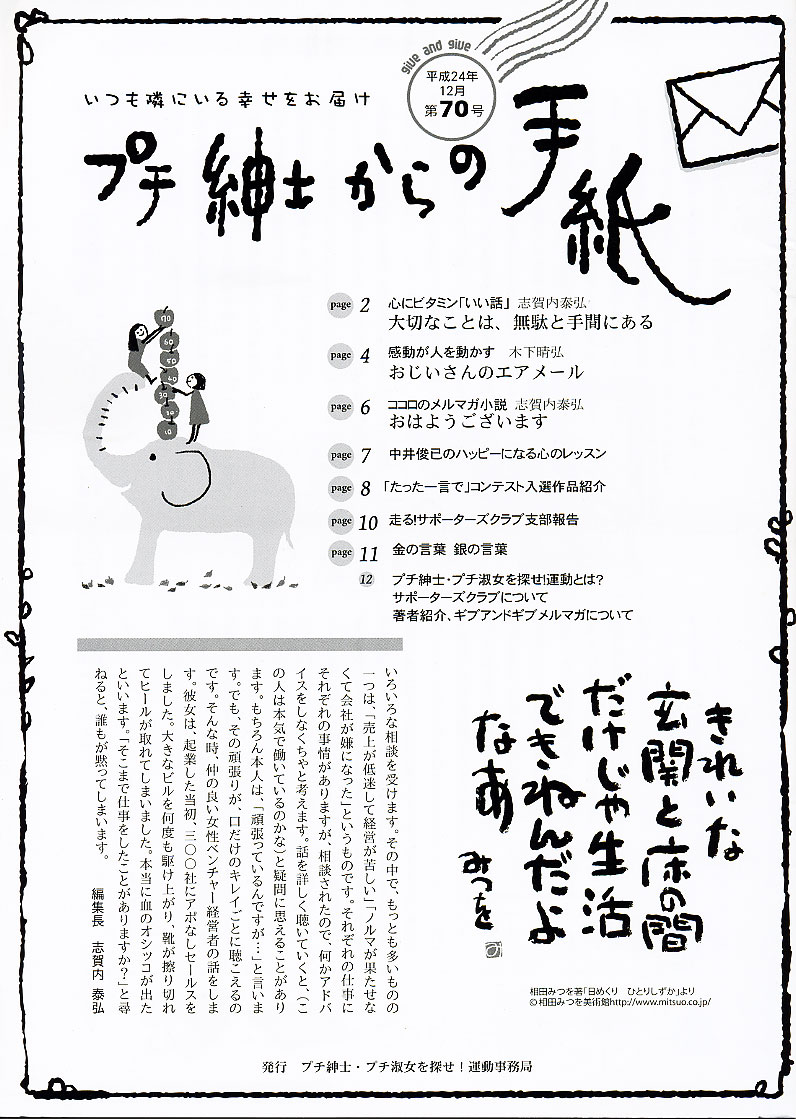 give and give
平成24年
12月
第70号
いつも隣にいる幸せをお届け
プチ紳士からの手紙
page 2 心にビタミン「いい話」 志賀内泰弘
大切なことは、無駄と手間にある
page 4 感動が人を動かす 木下晴弘
おじいさんのエアメール
page 6 ココロのメルマガ小説 志賀内泰弘
おはようございます
page 7 中井俊已のハッピーになる心のレッスン
page 8 「たった一言で」コンテスト入選作品紹介
page 10 走る!サポーターズクラブ支部報告
page 11 金の言葉 銀の言葉
12 プチ紳士・プチ淑女を探せ!運動とは?
サポーターズクラブについて
著者紹介、ギブアンドギブメルマガについて
90
60
50
40
30
20
10
きれいな
玄関と床の間
だけじゃ生活
できねんだよ
なあ
みつを
相田みつを著「日めくり ひとりしずか」より
©相田みつを美術館http://www.mitsuo.co.jp/
いろいろな相談を受けます。その中で、もっとも多いものの
一つは、「売上が低迷して経営が苦しい」「ノルマが果たせな
くて会社が嫌になった」というものです。それぞれの仕事に
それぞれの事情がありますが、相談されたので、何かアドバ
イスをしなくちゃと考えます。話を詳しく聴いていくと、(こ
の人は本気で働いているのかな)と疑問に思えることがあり
ます。もちろん本人は、「頑張っているんですが…」と言いま
す。でも、その頑張りが、口だけのキレイごとに聴こえるの
です。そんな時、仲の良い女性ベンチャー経営者の話をしま
す。彼女は、起業した当初、三〇〇社にアポなしセールスを
しました。大きなビルを何度も駆け上がり、靴が擦り切れ
てヒールが取れてしまいました。本当に血のオシッコが出た
といいます。「そこまで仕事をしたことがありますか?」と尋
ねると、誰もが黙ってしまいます。
編集長 志賀内 泰弘
発行 プチ紳士・プチ淑女を探せ!運動事務局